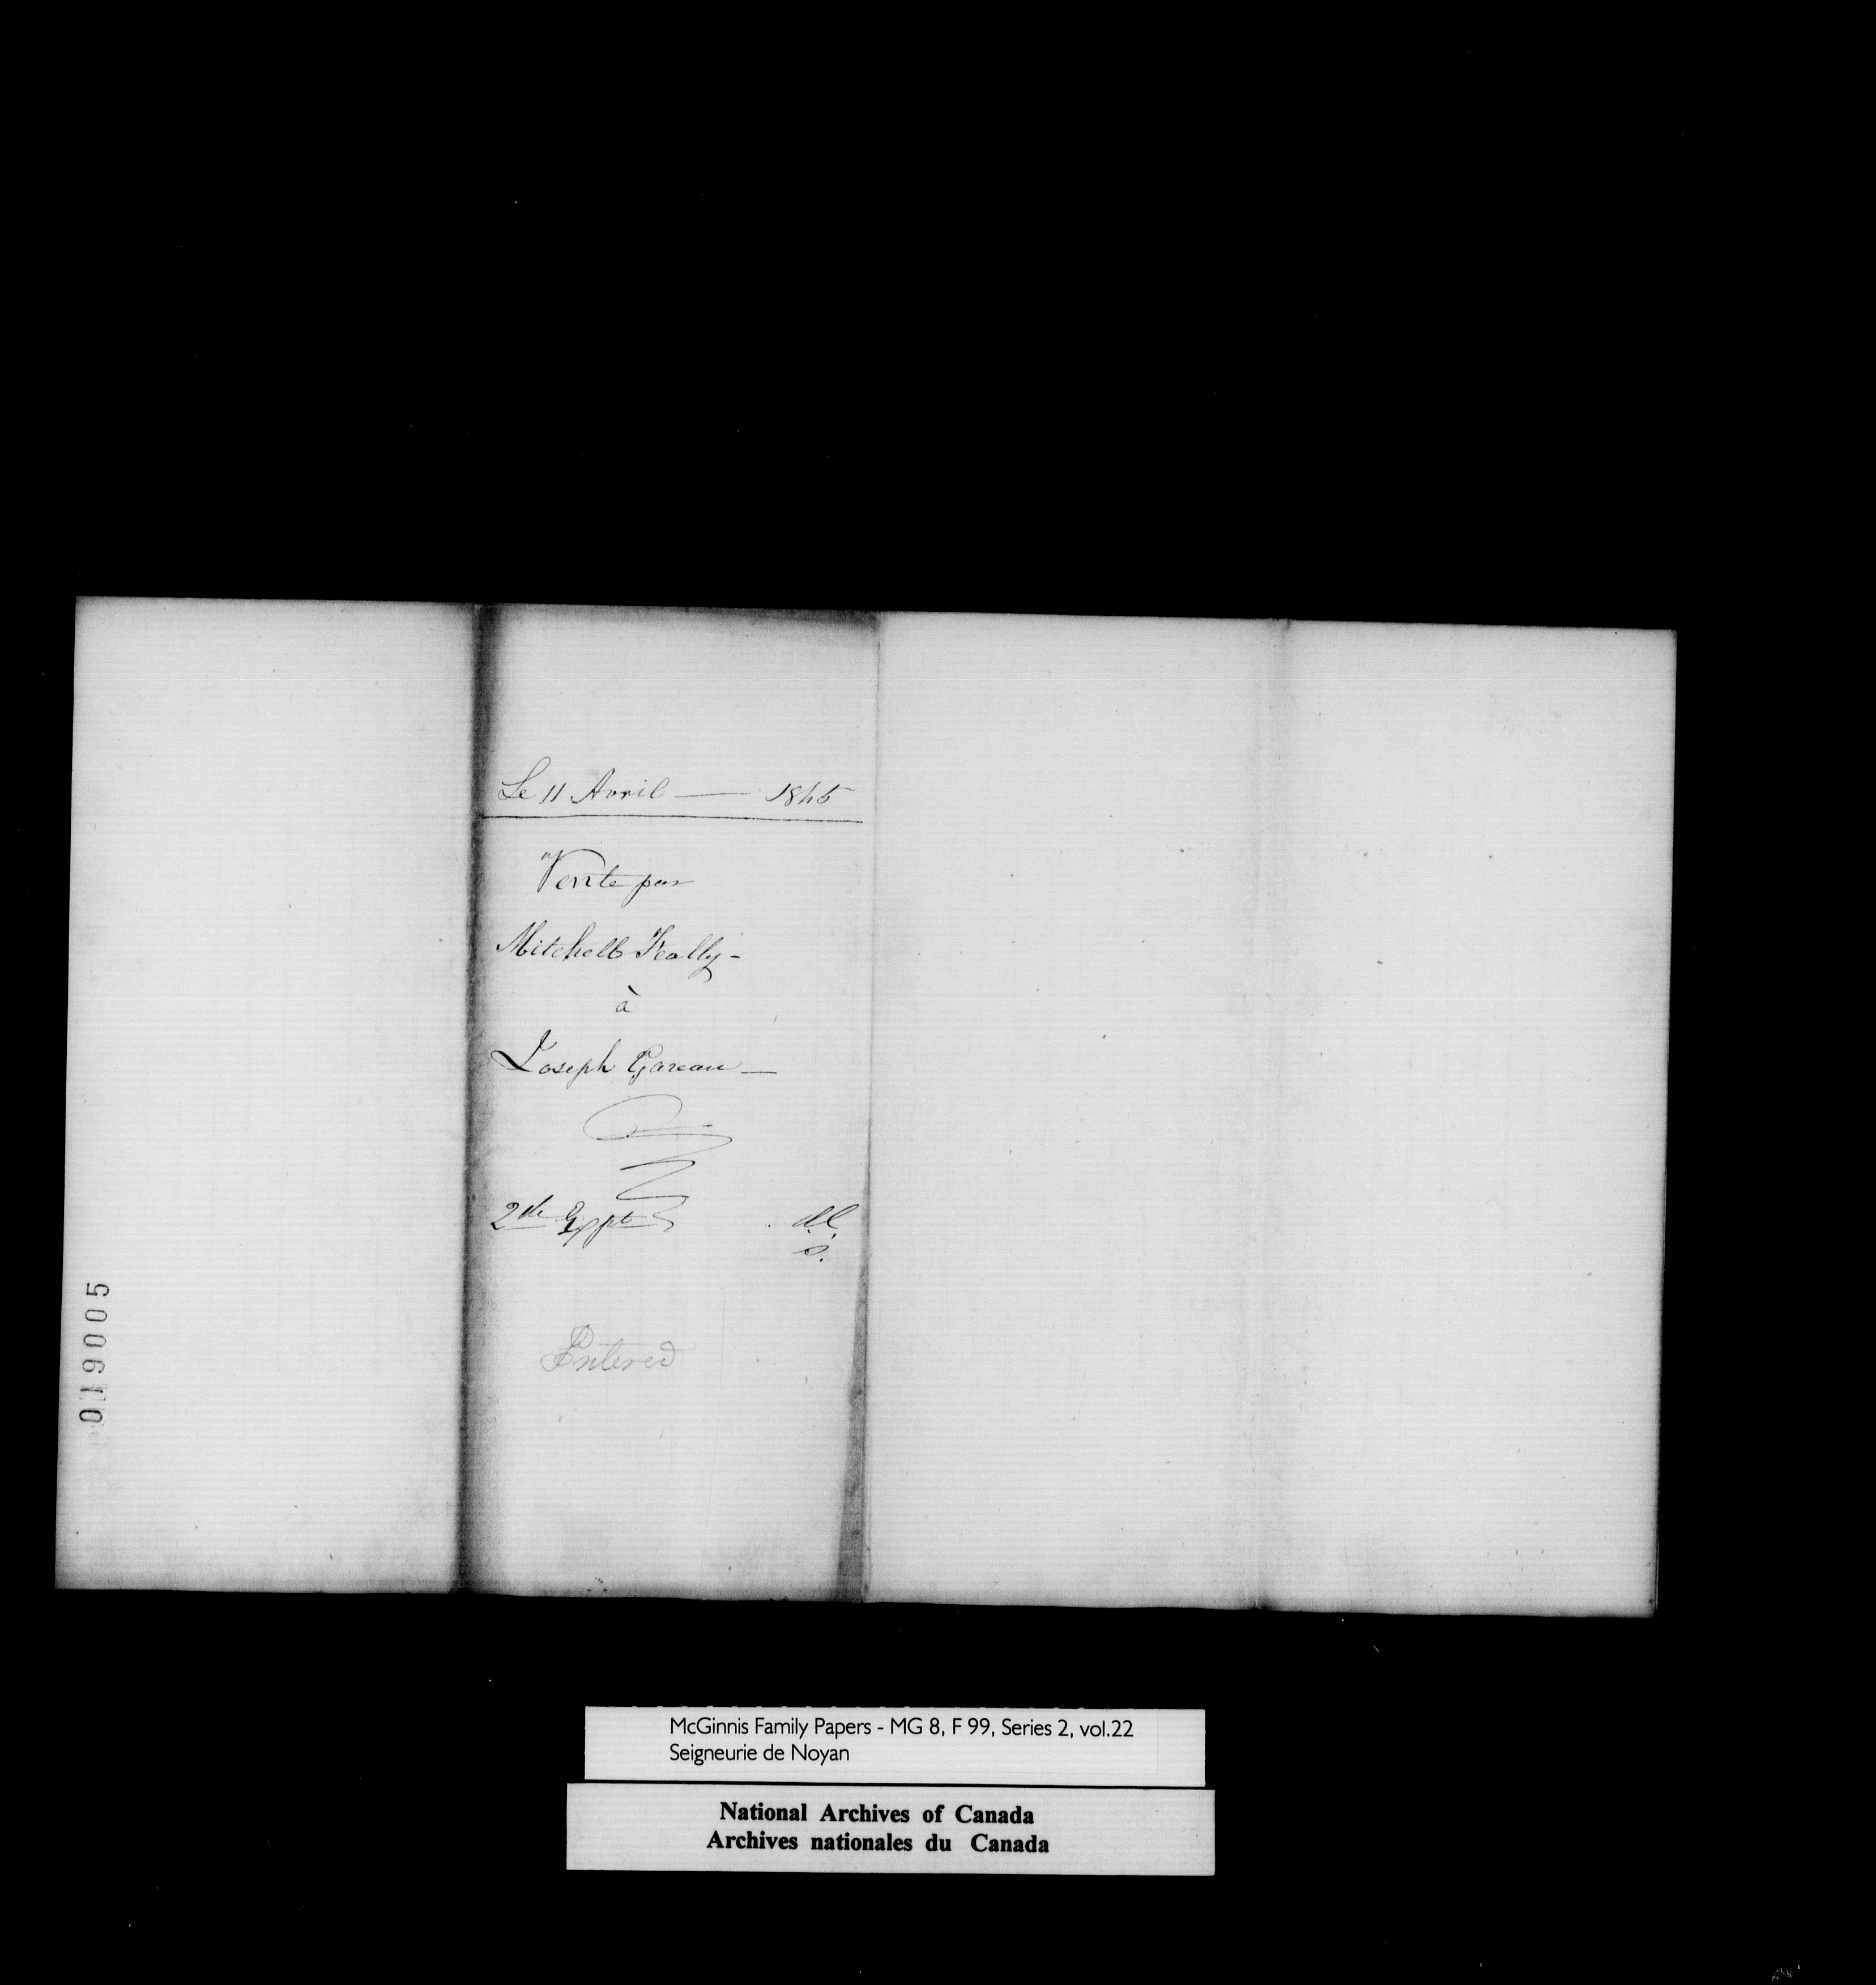 Le 11 Avril — 1845
Vente par
Mitchell Keally -
à
Joseph Gareau —
2de Expt
Entered
019005
McGinnis Family Papers - MG 8, F 99, Series 2, vol.22
Seigneurie de Noyan
National Archives of Canada
Archives nationales du Canada